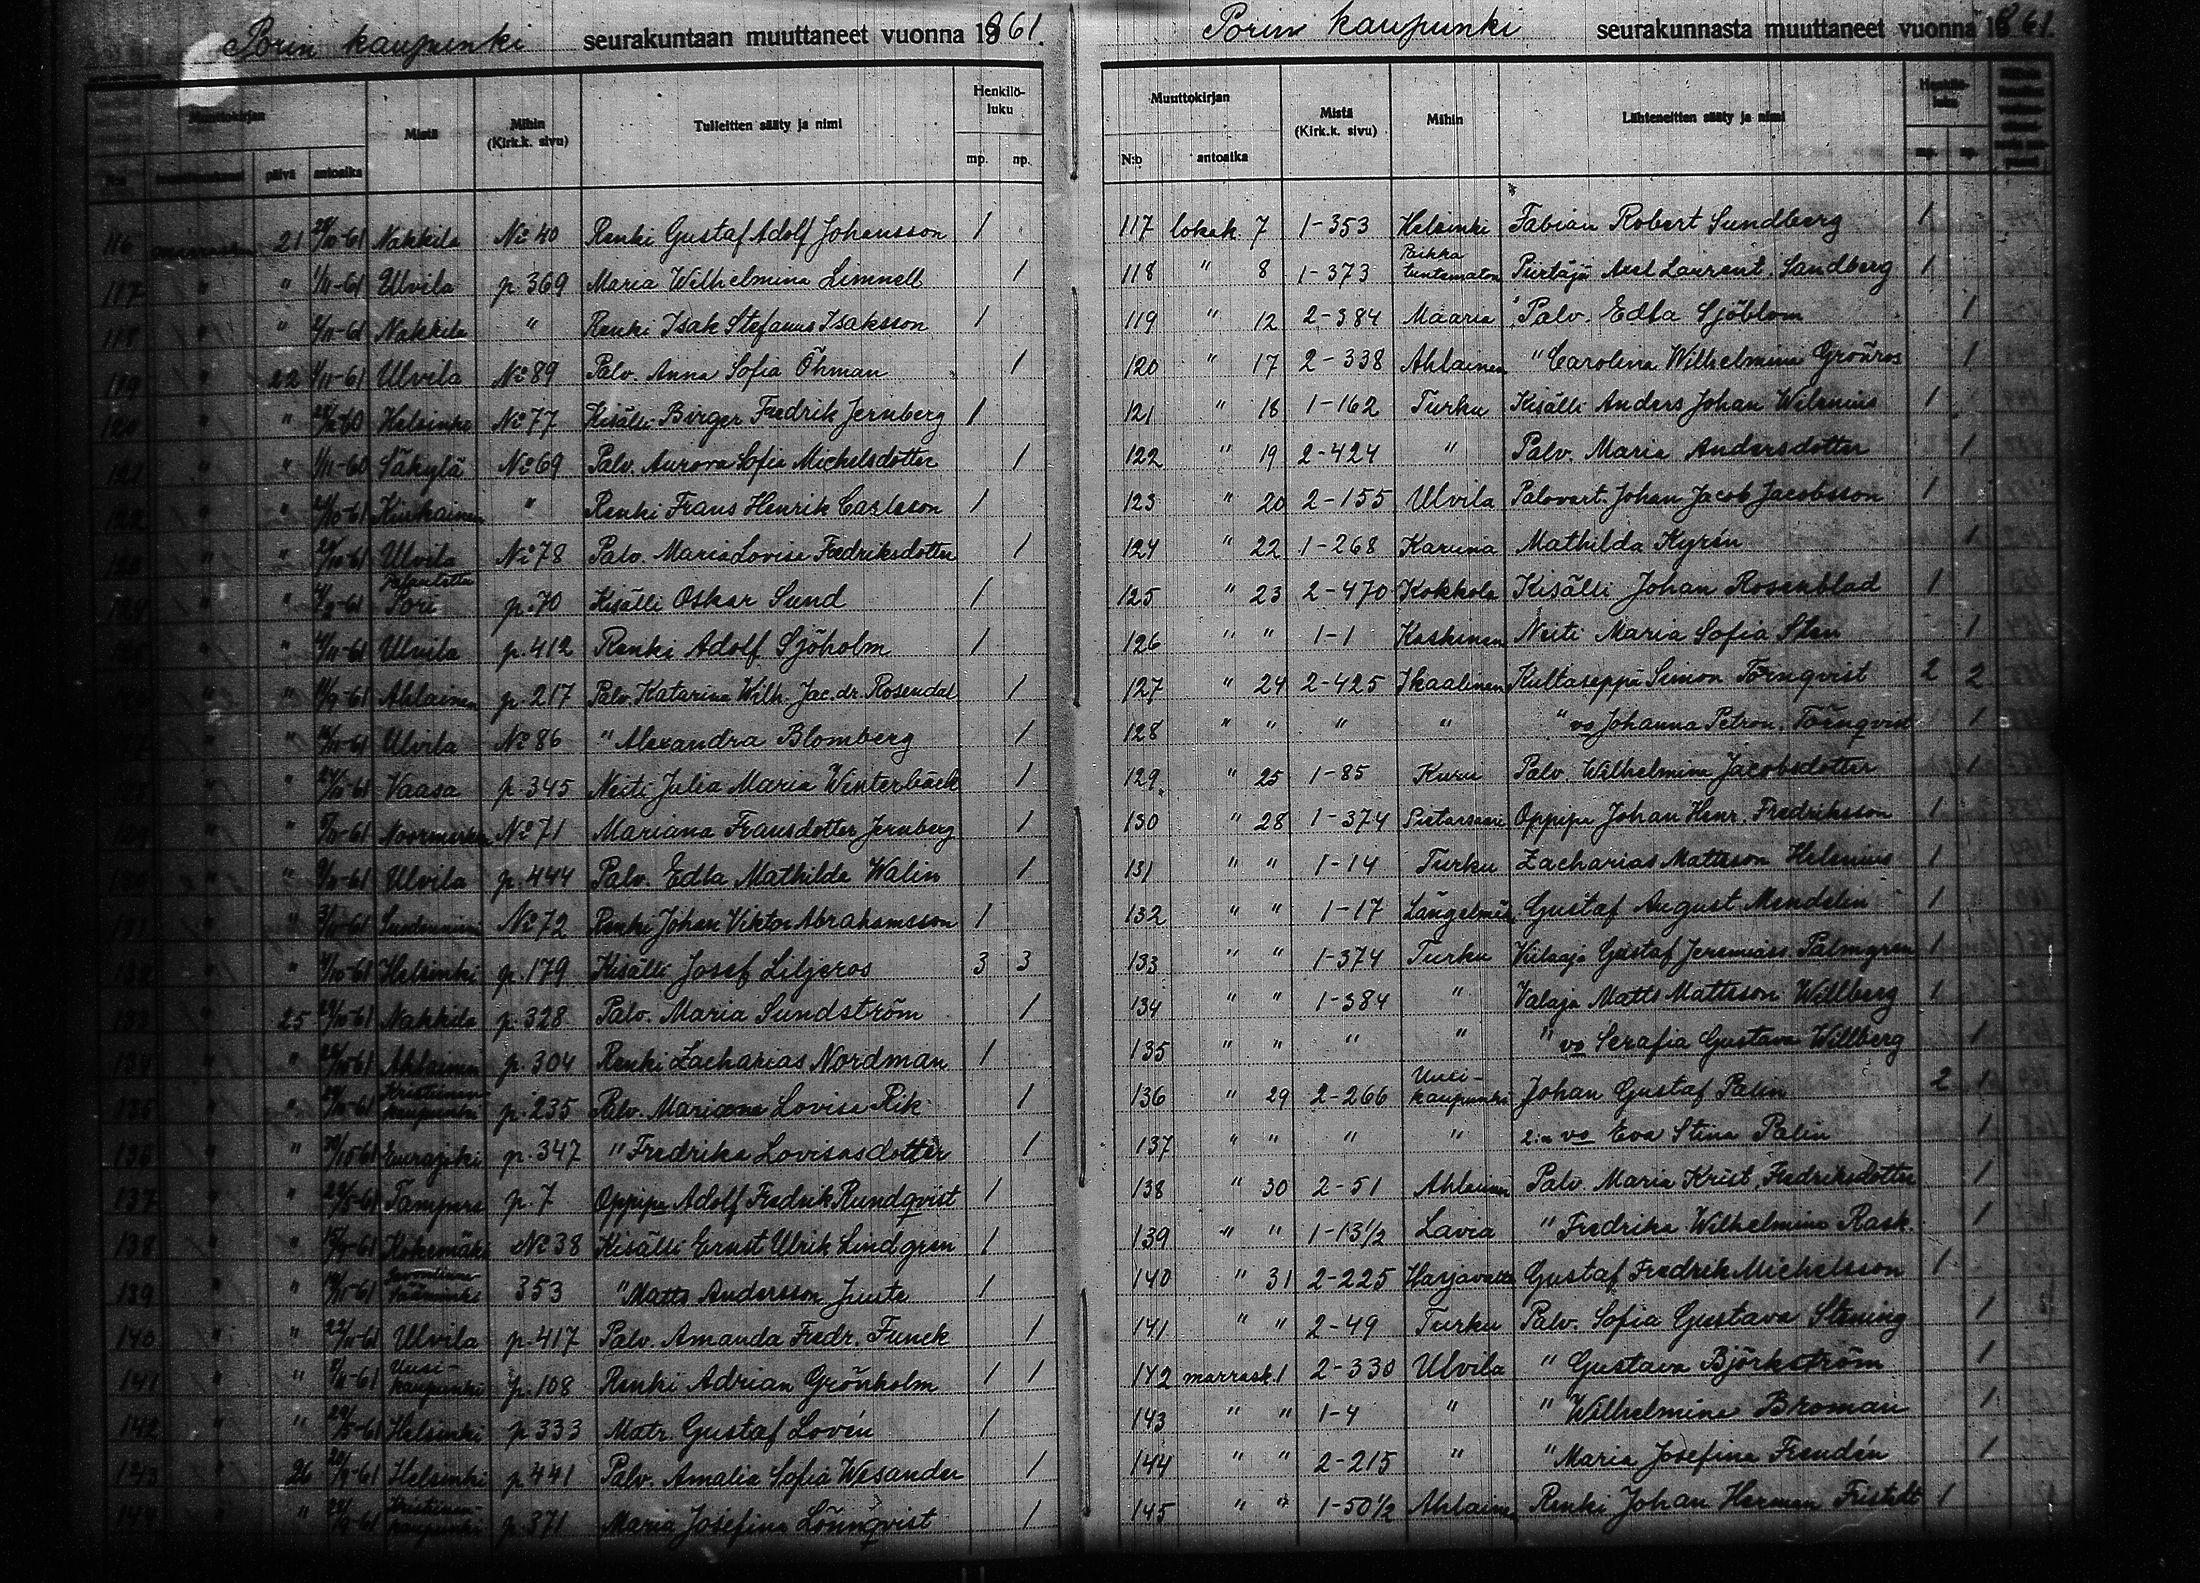 Porin kaupunki seurakuntaan muuttaneet vuonna 1861.
Muuttokirjan Mistä Mihin (Kirk.k. sivu) Tulleitten sääty ja nimi Henkilö-luku
päivä antoaika mp. np.
116 21 Nakkila No 40 Renki Gustaf Adolf Johansson 1
117 " " 1/11-61 Ulvila p. 369 Maria Wilhelmina Limnell 1
118 " " Nakkila " Renki Isak Stefanus Isaksson 1
119 " 22 Ulvila No 89 Palv. Anna Sofia Öhman 1
120 " " Helsinki No 77 Kisälli Birger Fredrik Jernberg 1
121 " " Säkylä No 69 Palv. Aurora Sofia Michelsdotter 1
" " Kiukainen " Renki Frans Henrik Carlsson 1
" " Ulvila No 78 Palv. Maria Lovisa Fredriksdotter 1
" " Pori p. 70 Kisälli Oskar Sund 1
" Ulvila p. 412 Renki Adolf Sjöholm 1
" " Ahlainen p. 217 Palv. Katarina Wilh. Jac.dr. Rosendal 1
" " Ulvila No 86 " Alexandra Blomberg 1
" " Vaasa p. 345 Neiti Julia Maria Winterbäck 1
" " Noormarkku No 71 Mariana Fransdotter Jernberg 1
" " Ulvila p. 444 Palv. Edla Mathilda Walin 1
" " No 72 Renki Johan Viktor Abrahamsson 1
132 " " Helsinki p. 179 Kisälli Josef Liljeros 3 3
133 " 25 Nakkila p. 328 Palv. Maria Sundström 1
134 " " Ahlainen p. 304 Renki Zacharias Nordman 1
135 " " Kristiinan-kaupunki p. 235 Palv. Mariana Lovisa Rik 1
136 " " Eurajoki p. 347 " Fredrika Lovisasdotter 1
137 " " Tampere p. 7 Oppipo. Adolf Fredrik Rundqvist 1
138 " " Kokemäki No 38 Kisälli Ernst Ulrik Lindgren 1
139 " " 353 " Matts Andersson Juuta 1
140 " " 22/11-61 Ulvila p. 417 Palv. Amanda Fredr. Funck 1
141 " " Uusi-kaupunki p. 108 Renki Adrian Grönholm 1 1
142 " " Helsinki p. 333 Matr. Gustaf Lovén 1
143 " 26 Helsinki p. 441 Palv. Amalia Sofia Wesander 1
144 " " Kristiinan-kaupunki p. 371 Maria Josefina Lönnqvist 1
Porin kaupunki seurakunnasta muuttaneet vuonna 1861.
Muuttokirjan Mistä (Kirk.k. sivu) Mihin Lähteneitten sääty ja nimi Henkilö-luku
N:o antoaika mp. np.
117 lokak. 7 1-353 Helsinki Fabian Robert Sundberg 1
118 " 8 1-373 Paikka tuntematon Piirtäjä Axel Laurent. Sandberg 1
119 " 12 2-384 Maaria Palv. Edla Sjöblom 1
120 " 17 2-338 Ahlainen " Carolina Wilhelmina Grönros 1
121 " 18 1-162 Turku Kisälli Anders Johan Wilenius 1
122 " 19 2-424 " Palv. Maria Andersdotter 1
123 " 20 2-155 Ulvila Palovart. Johan Jacob Jacobsson 1
124 " 22 1-268 Karuna Mathilda Kyrén 1
125 " 23 2-470 Kokkola Kisälli Johan Rosenblad 1
126 " " 1-1 Kaskinen Neiti Maria Sofia Sten 1
127 " 24 2-425 Ikaalinen Kultaseppä Simon Törnqvist 2 2
128 " " " " " vo Johanna Petron. Törnqvist 1
129 " 25 1-85 Kuru Palv. Wilhelmina Jacobsdotter 1
130 " 28 1-374 Pietarsaari Oppipo. Johan Henr. Fredriksson 1
131 " " 1-14 Turku Zacharias Mattsson Helenius 1
132 " " 1-17 Längelmäki Gustaf August Mendelin 1
133 " " 1-374 Turku Viilaaja Gustaf Jeremiass. Palmgren 1
134 " " 1-384 " Valaja Matts Mattsson Willberg 1
135 " " " " " vo Serafia Gustava Willberg 1
136 " 29 2-266 Uusi-kaupunki Johan Gustaf Palin 2 1
137 " " " " 2:n vo Eva Stina Palin 1
138 " 30 2-51 Ahlainen Palv. Maria Krist. Fredriksdotter 1
139 " " 1-13 1/2 Lavia " Fredrika Wilhelmina Rask. 1
140 " 31 2-225 Harjavalta Gustaf Fredrik Michelsson 1
141 " " 2-49 Turku Palv. Sofia Gustava Stening 1
142 marrask. 1 2-330 Ulvila " Gustava Björkström 1
143 " " 1-4 " " Wilhelmina Broman 1
144 " " 2-215 " " Maria Josefina Frendén 1
145 " " 1-50 1/2 Ahlainen Renki Johan Herman Fristedt 1